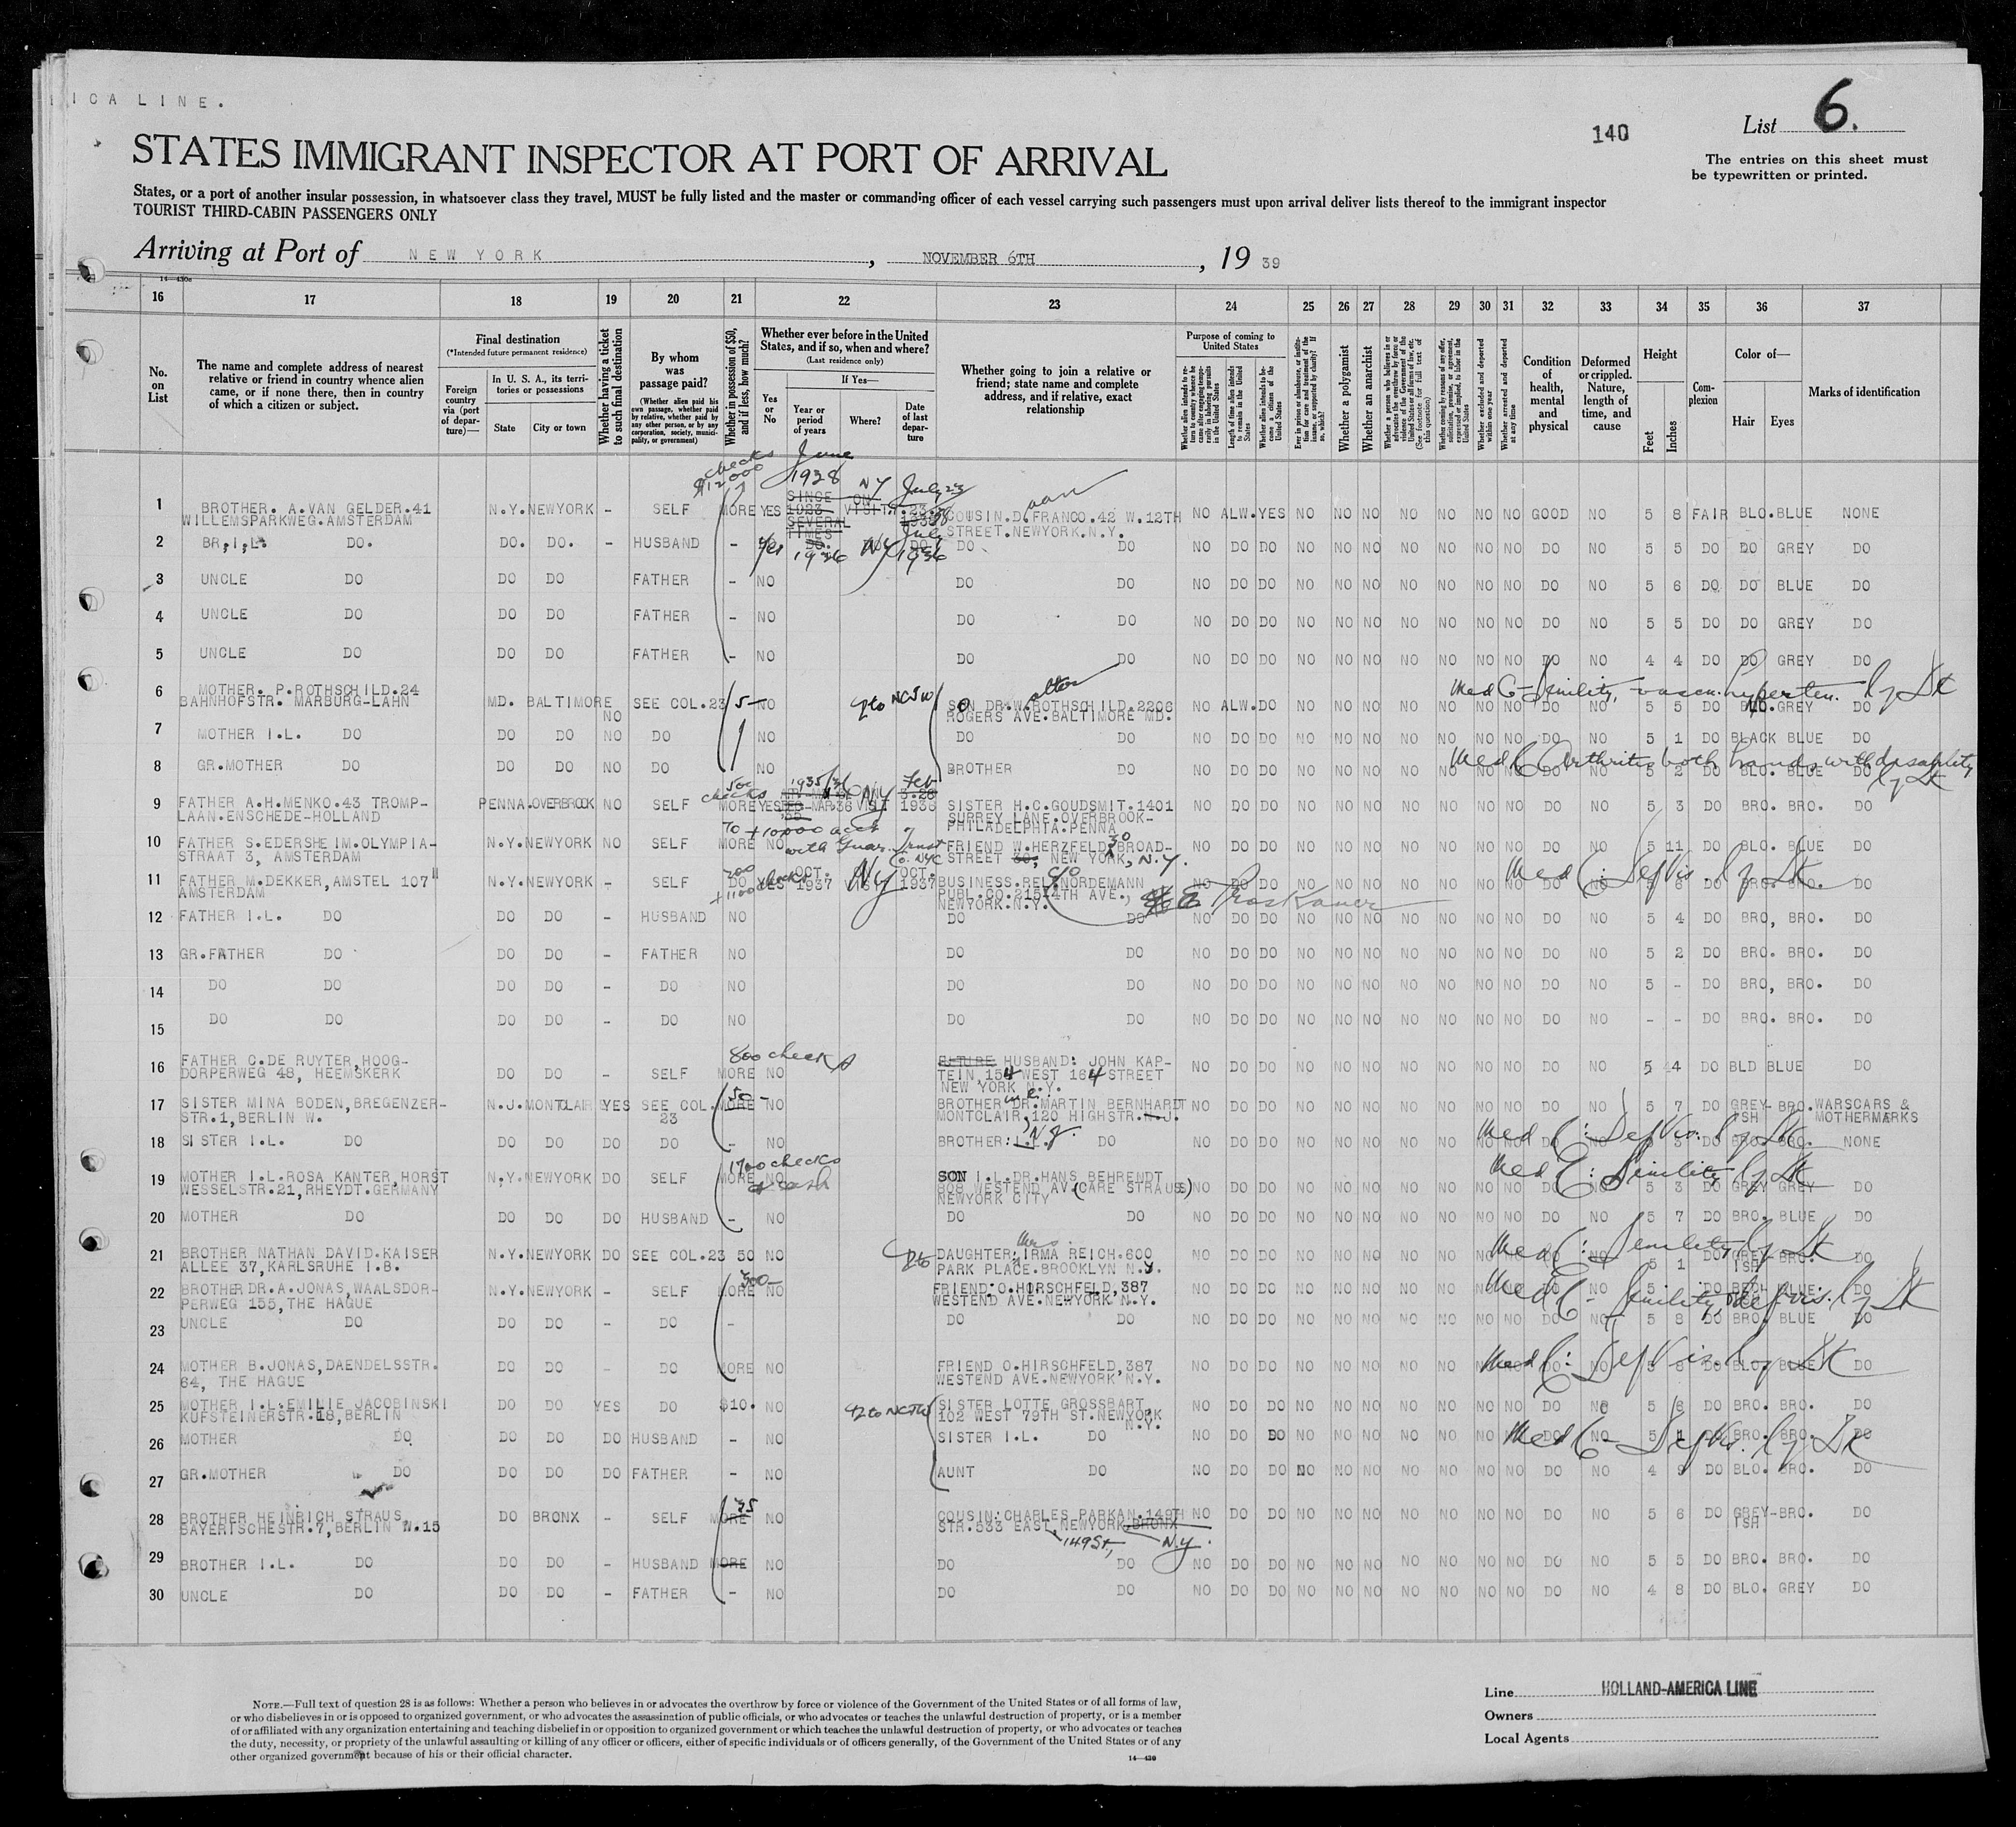 ICA LINE.
140
List 6.
The entries on this sheet must
be typewritten or printed.
STATES IMMIGRANT INSPECTOR AT PORT OF ARRIVAL
States, or a port of another insular possession, in whatsoever class they travel, MUST be fully listed and the master or commanding officer of each vessel carrying such passengers must upon arrival deliver lists thereof to the immigrant inspector
TOURIST THIRD-CABIN PASSENGERS ONLY
Arriving at Port of NEW YORK, NOVEMBER 6TH, 1939
16 17 18 19 20 21 22 23 24 25 26 27 28 29 30 31 32 33 34 35 36 37
No. on List
The name and complete address of nearest relative or friend in country whence alien came, or if none there, then in country of which a citizen or subject.
Final destination
(*Intended future permanent residence)
Foreign country via (port of departure)—
In U. S. A., its territories or possessions
State
City or town
Whether having a ticket to such final destination
By whom was passage paid?
(Whether alien paid his own passage, whether paid by relative, whether paid by any other person, or by any corporation, society, municipality, or government)
Whether in possession of $50, and if less, how much?
Whether ever before in the United States, and if so, when and where?
(Last residence only)
Yes or No
If Yes—
Year or period of years
Where?
Date of last departure
Whether going to join a relative or friend; state name and complete address, and if relative, exact relationship
Purpose of coming to United States
Length of time alien intends to remain in the United States
Whether alien intends to become a citizen of the United States
Whether a polygamist
Whether an anarchist
Whether excluded and deported within one year
Whether arrested and deported at any time
Condition of health, mental and physical
Deformed or crippled. Nature, length of time, and cause
Height
Feet
Inches
Complexion
Color of—
Hair
Eyes
Marks of identification
checks $12000 June 1928 NY July 23
1 BROTHER. A.VAN GELDER.41 WILLEMSPARKWEG.AMSTERDAM N.Y. NEWYORK - SELF MORE YES SINCE 1923 SEVERAL TIMES ON VISIT COUSIN.D.FRANCO.42 W.12TH STREET.NEWYORK.N.Y. NO ALW. YES NO NO NO NO NO NO NO GOOD NO 5 8 FAIR BLO. BLUE NONE
2 BR.I.L. DO. DO. DO. - HUSBAND - yes 1926 NY July 1936 DO DO NO DO DO NO NO NO NO NO NO NO DO NO 5 5 DO DO GREY DO
3 UNCLE DO DO DO - FATHER - NO DO DO NO DO DO NO NO NO NO NO NO NO DO NO 5 6 DO DO BLUE DO
4 UNCLE DO DO DO - FATHER - NO DO DO NO DO DO NO NO NO NO NO NO NO DO NO 5 5 DO DO GREY DO
5 UNCLE DO DO DO - FATHER - NO DO DO NO DO DO NO NO NO NO NO NO NO DO NO 4 4 DO DO GREY DO
Med C - Senility,
6 MOTHER. P.ROTHSCHILD.24 BAHNHOFSTR. MARBURG-LAHN MD. BALTIMORE NO SEE COL.23 5- NO SON DR.W.ROTHSCHILD.2206 ROGERS AVE.BALTIMORE MD. NO ALW. DO NO NO NO NO NO NO NO DO NO 5 5 DO BLO. GREY DO
7 MOTHER I.L. DO DO DO NO DO NO DO DO NO DO DO NO NO NO NO NO NO NO DO NO 5 1 DO BLACK BLUE DO
Med C Arthritis both hands with disability
8 GR.MOTHER DO DO DO NO DO NO BROTHER DO NO DO DO NO NO NO NO NO NO NO DO NO 5 2 DO BLO. BLUE DO
9 FATHER A.H.MENKO.43 TROMP-LAAN.ENSCHEDE-HOLLAND PENNA. OVERBROOK NO SELF 500 checks MORE YES 1935/36 NY Feb 1936 SISTER H.C.GOUDSMIT.1401 SURREY LANE.OVERBROOK-PHILADELPHIA.PENNA NO DO DO NO NO NO NO NO NO NO DO NO 5 3 DO BRO. BRO. DO
10 FATHER S.EDERSHEIM.OLYMPIA-STRAAT 3, AMSTERDAM N.Y. NEWYORK NO SELF 70 + 10,000 acct with Guar. Trust Co. NYC MORE NO FRIEND W.HERZFELD 30 BROAD-STREET, NEW YORK, N.Y. NO DO DO NO NO NO NO NO NO NO DO NO 5 11 DO BLO. BLUE DO
Med C: Def Vis.
11 FATHER M.DEKKER, AMSTEL 107 AMSTERDAM N.Y. NEWYORK - SELF 200 + 1100 checks DO YES OCT. 1937 NY OCT. 1937 BUSINESS.REL. c/o NORDEMANN PUBL.CO.215 4TH AVE., NEWYORK.N.Y. E. Proskauer NO DO DO NO NO NO NO NO NO NO DO NO 5 6 DO BRO. BRO. DO
12 FATHER I.L. DO DO DO - HUSBAND NO DO DO NO DO DO NO NO NO NO NO NO NO DO NO 5 4 DO BRO, BRO. DO
13 GR.FATHER DO DO DO - FATHER NO DO DO NO DO DO NO NO NO NO NO NO NO DO NO 5 2 DO BRO. BRO. DO
14 DO DO DO DO - DO NO DO DO NO DO DO NO NO NO NO NO NO NO DO NO 5 - DO BRO, BRO. DO
15 DO DO DO DO - DO NO DO DO NO DO DO NO NO NO NO NO NO NO DO NO - - DO BRO. BRO. DO
16 FATHER C.DE RUYTER, HOOG-DORPERWEG 48, HEEMSKERK DO DO - SELF 800 checks MORE NO FUTURE HUSBAND: JOHN KAP-TEIN, 154 WEST 164 STREET NEW YORK N.Y. NO DO DO NO NO NO NO NO NO NO DO NO 5 4 DO BLD BLUE DO
17 SISTER MINA BODEN, BREGENZER-STR.1, BERLIN W. N.J. MONTCLAIR YES SEE COL. 23 50- MORE NO BROTHER DR.MARTIN BERNHARDT MONTCLAIR, 120 HIGHSTR. N.J. NO DO DO NO NO NO NO NO NO NO DO NO 5 7 DO GREY-ISH BRO. WARSCARS & MOTHERMARKS
Med C: Def Vis.
18 SISTER I.L. DO DO DO DO DO - NO BROTHER: I.L. N.J. DO NO DO DO NO NO NO NO NO NO NO DO NO 5 3 DO BRO. BRO. NONE
Med C: Senility
19 MOTHER I.L.ROSA KANTER, HORST WESSELSTR.21, RHEYDT.GERMANY N.Y. NEWYORK DO SELF 1700 checks & cash MORE NO SON I.L.DR.HANS BEHRENDT 808 WESTEND AV. (CARE STRAUSS) NEWYORK CITY NO DO DO NO NO NO NO NO NO NO DO NO 5 3 DO GREY GREY DO
20 MOTHER DO DO DO DO HUSBAND - NO DO DO NO DO DO NO NO NO NO NO NO NO DO NO 5 7 DO BRO. BLUE DO
Med C: Senility
21 BROTHER NATHAN DAVID.KAISER ALLEE 37, KARLSRUHE I.B. N.Y. NEWYORK DO SEE COL.23 50 NO DAUGHTER: Mrs. IRMA REICH.600 PARK PLACE.BROOKLYN N.Y. NO DO DO NO NO NO NO NO NO NO DO NO 5 1 DO GREY-ISH BRO. DO
Med C - Senility, def vis.
22 BROTHER DR.A.JONAS, WAALSDOR-PERWEG 155, THE HAGUE N.Y. NEWYORK - SELF MORE NO FRIEND: O.HIRSCHFELD, 387 WESTEND AVE.NEWYORK N.Y. NO DO DO NO NO NO NO NO NO NO DO NO 5 DO BLUE DO
23 UNCLE DO DO DO - DO - DO DO NO DO DO NO NO NO NO NO NO NO DO NO 5 8 DO BRO. BLUE DO
Med C: Def Vis
24 MOTHER B.JONAS, DAENDELSSTR. 64, THE HAGUE DO DO - DO MORE NO FRIEND O.HIRSCHFELD, 387 WESTEND AVE.NEWYORK, N.Y. NO DO DO NO NO NO NO NO NO NO DO NO 5 DO BLO. BLUE DO
25 MOTHER I.L.EMILIE JACOBINSKI KUFSTEINERSTR.18, BERLIN DO DO YES DO $10. NO SISTER LOTTE GROSSBART, 102 WEST 79TH ST.NEWYORK N.Y. NO DO DO NO NO NO NO NO NO NO DO NO 5 8 DO BRO. BRO. DO
Med C - Def Vis.
26 MOTHER DO DO DO DO HUSBAND - NO SISTER I.L. DO NO DO DO NO NO NO NO NO NO NO DO NO 5 1 DO BRO. BRO. DO
27 GR.MOTHER DO DO DO DO FATHER - NO AUNT DO NO DO DO NO NO NO NO NO NO NO DO NO 4 9 DO BLO. BRO. DO
28 BROTHER HEINRICH STRAUS, BAYERISCHESTR.7, BERLIN W.15 DO BRONX - SELF 35 MORE NO COUSIN: CHARLES PARKAN.149TH STR.533 EAST, NEWYORK BRONX 149 St, N.Y. NO DO DO NO NO NO NO NO NO NO DO NO 5 6 DO GREY-ISH BRO. DO
29 BROTHER I.L. DO DO DO - HUSBAND MORE NO DO DO NO DO DO NO NO NO NO NO NO NO DO NO 5 5 DO BRO. BRO. DO
30 UNCLE DO DO DO - FATHER - NO DO DO NO DO DO NO NO NO NO NO NO NO DO NO 4 8 DO BLO. GREY DO
NOTE.—Full text of question 28 is as follows: Whether a person who believes in or advocates the overthrow by force or violence of the Government of the United States or of all forms of law,
or who disbelieves in or is opposed to organized government, or who advocates the assassination of public officials, or who advocates or teaches the unlawful destruction of property, or is a member
of or affiliated with any organization entertaining and teaching disbelief in or opposition to organized government or which teaches the unlawful destruction of property, or who advocates or teaches
the duty, necessity, or propriety of the unlawful assaulting or killing of any officer or officers, either of specific individuals or of officers generally, of the Government of the United States or of any
other organized government because of his or their official character.
14—430
Line HOLLAND-AMERICA LINE
Owners
Local Agents